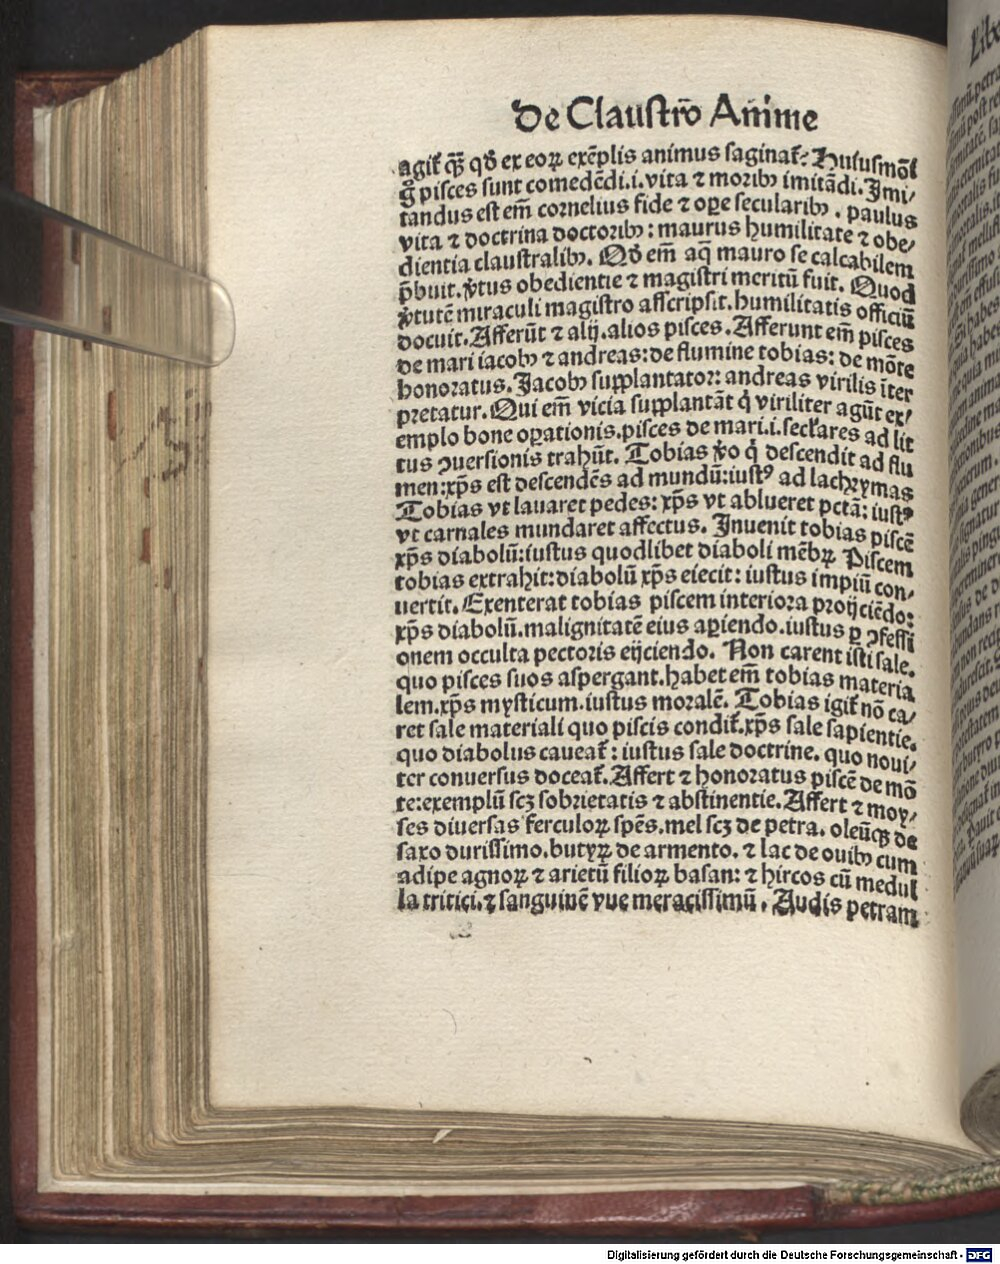 De Claustro Anime
agit̃ qȝ̃ qð ex eoꝝ exẽplis animus saginat̃: Huiusmõi
g̊ pisces sunt comedẽdi.i. vita ⁊ moribꝰ imitãdi. Imi/
tandus est em̃ cornelius fide ⁊ oꝑe secularibꝰ . paulus
vita ⁊ doctrina doctoribꝰ : maurus humilitate ⁊ obe/
dientia claustralibꝰ. Qð em̃ aq̃ mauro se calcabilem
p̃buit. ꝟtus obedientie ⁊ magistri meritũ fuit. Quod
ꝟtutẽ miraculi magistro ascripsit. humilitatis officiũ
docuit. Afferũt ⁊ alij. alios pisces. Afferunt em̃ pisces
de mari iacobꝰ ⁊ andreas: de flumine tobias: de mõte
honoratus. Jacobꝰ supplantator: andreas virilis ĩter
pretatur. Qui em̃ vicia supplantãt q̇ viriliter agũt ex/
emplo bone oꝑationis. pisces de mari.i. seclares ad lit
tus ꝯuersionis trahũt. Tobias ꝟo q̇ descendit ad flu
men: xp̃s est descendẽs ad mundũ: iustꝰ ad lachrymas
Tobias vt lauaret pedes: xp̃s vt ablueret pctã: iustꝰ
vt carnales mundaret affectus. Inuenit tobias piscẽ
xp̃s diabolũ: iustus quodlibet diaboli mẽbꝝ Piscem
tobias extrahit: diabolũ xp̃s eiecit: iustus impiũ con/
uertit. Exenterat tobias piscem interiora proijciẽdo:
xp̃s diabolũ. malignitatẽ eius aꝑiendo. iustus ꝑ ꝯfessi
onem occulta pectoris eijciendo. Non carent isti sale.
quo pisces suos aspergant. habet em̃ tobias materia
lem. xp̃s mysticum. iustus moralẽ. Tobias igit̃ nõ ca/
ret sale materiali quo piscis condit̃. xp̃s sale sapientie.
quo diabolus caueat̃ : iustus sale doctrine. quo noui/
ter conuersus doceat̃. Affert ⁊ honoratus piscẽ de mõ
te: exemplũ scȝ sobrietatis ⁊ abstinentie. Affert ⁊ moy/
ses diuersas ferculoꝝ spẽs. mel scȝ de petra. oleũqȝ de
saxo durissimo. butyꝝ de armento. ⁊ lac de ouibꝰ cum
adipe agnoꝝ ⁊ arietũ filioꝝ basan: ⁊ hircos cũ medul
la tritici. ⁊ sanguinẽ vue meracissimũ. Audis petram
Digitalisierung gefördert durch die Deutsche Forschungsgemeinschaft - DFG